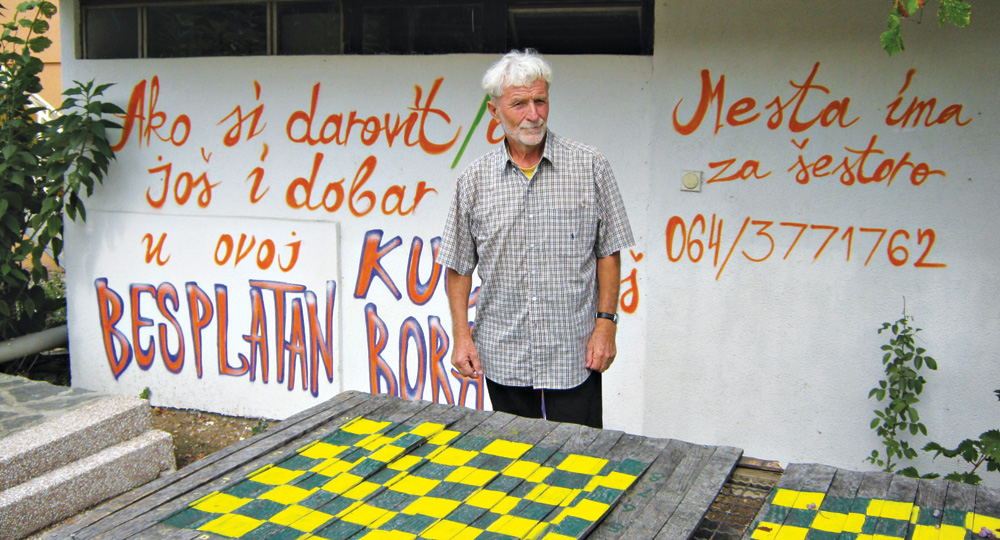 Ako si darovit/
još i dobar
u ovoj
BESPLATAN BORA
Mesta ima
za šestoro
064/3771762